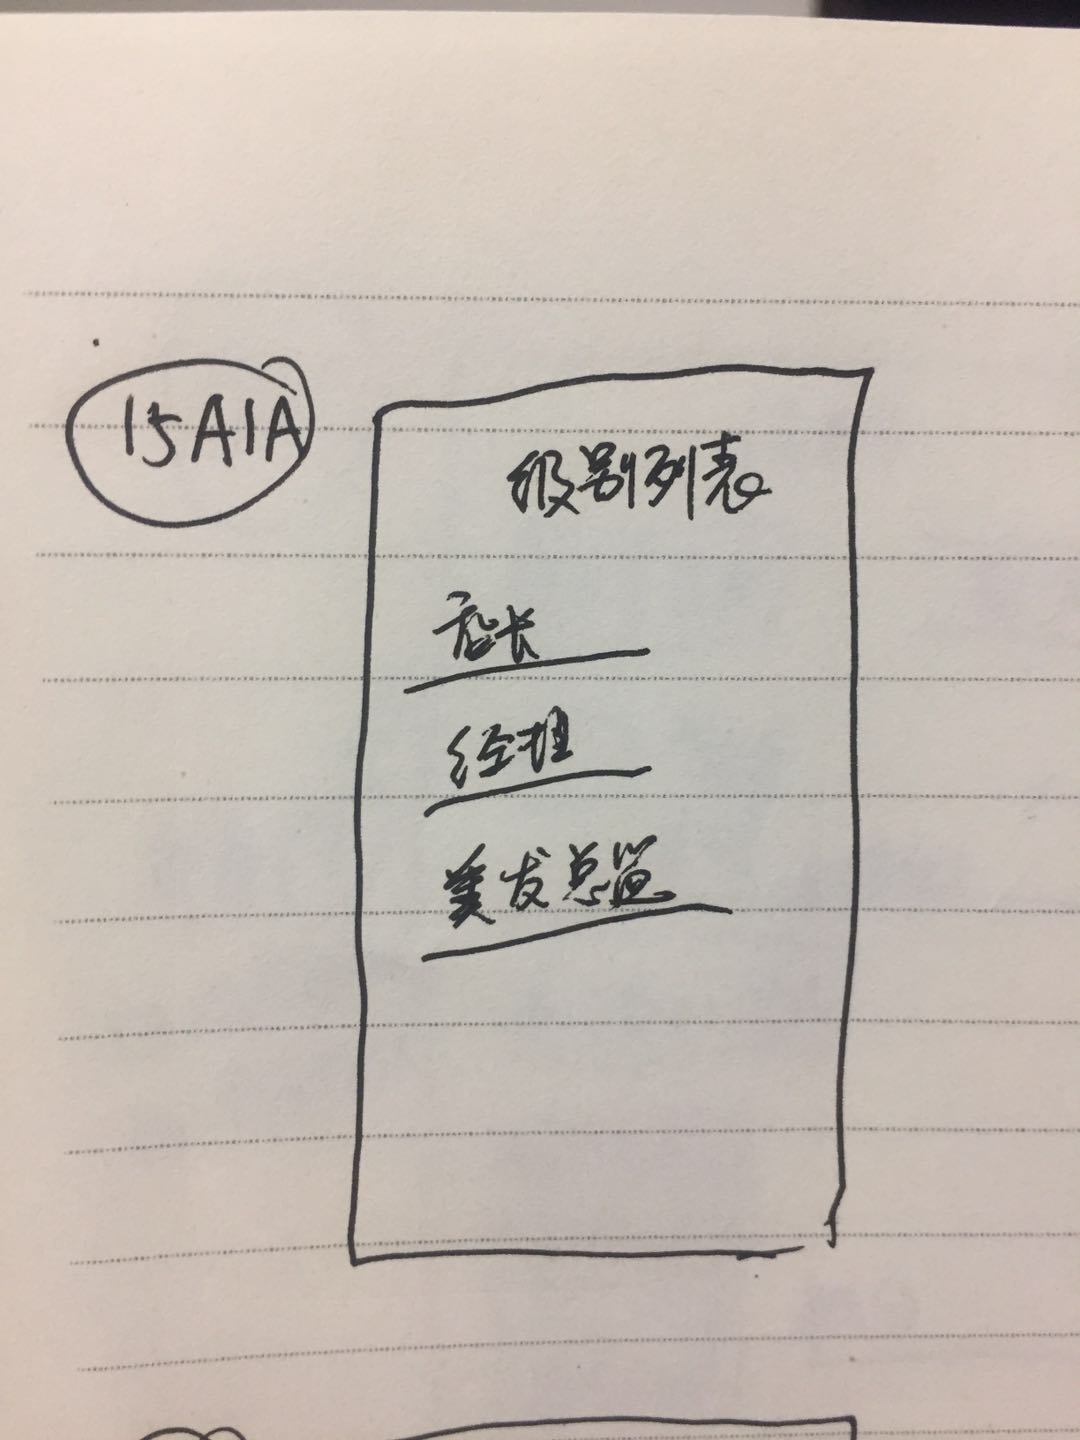 15A1A
级别列表
店长
经理
美发总监